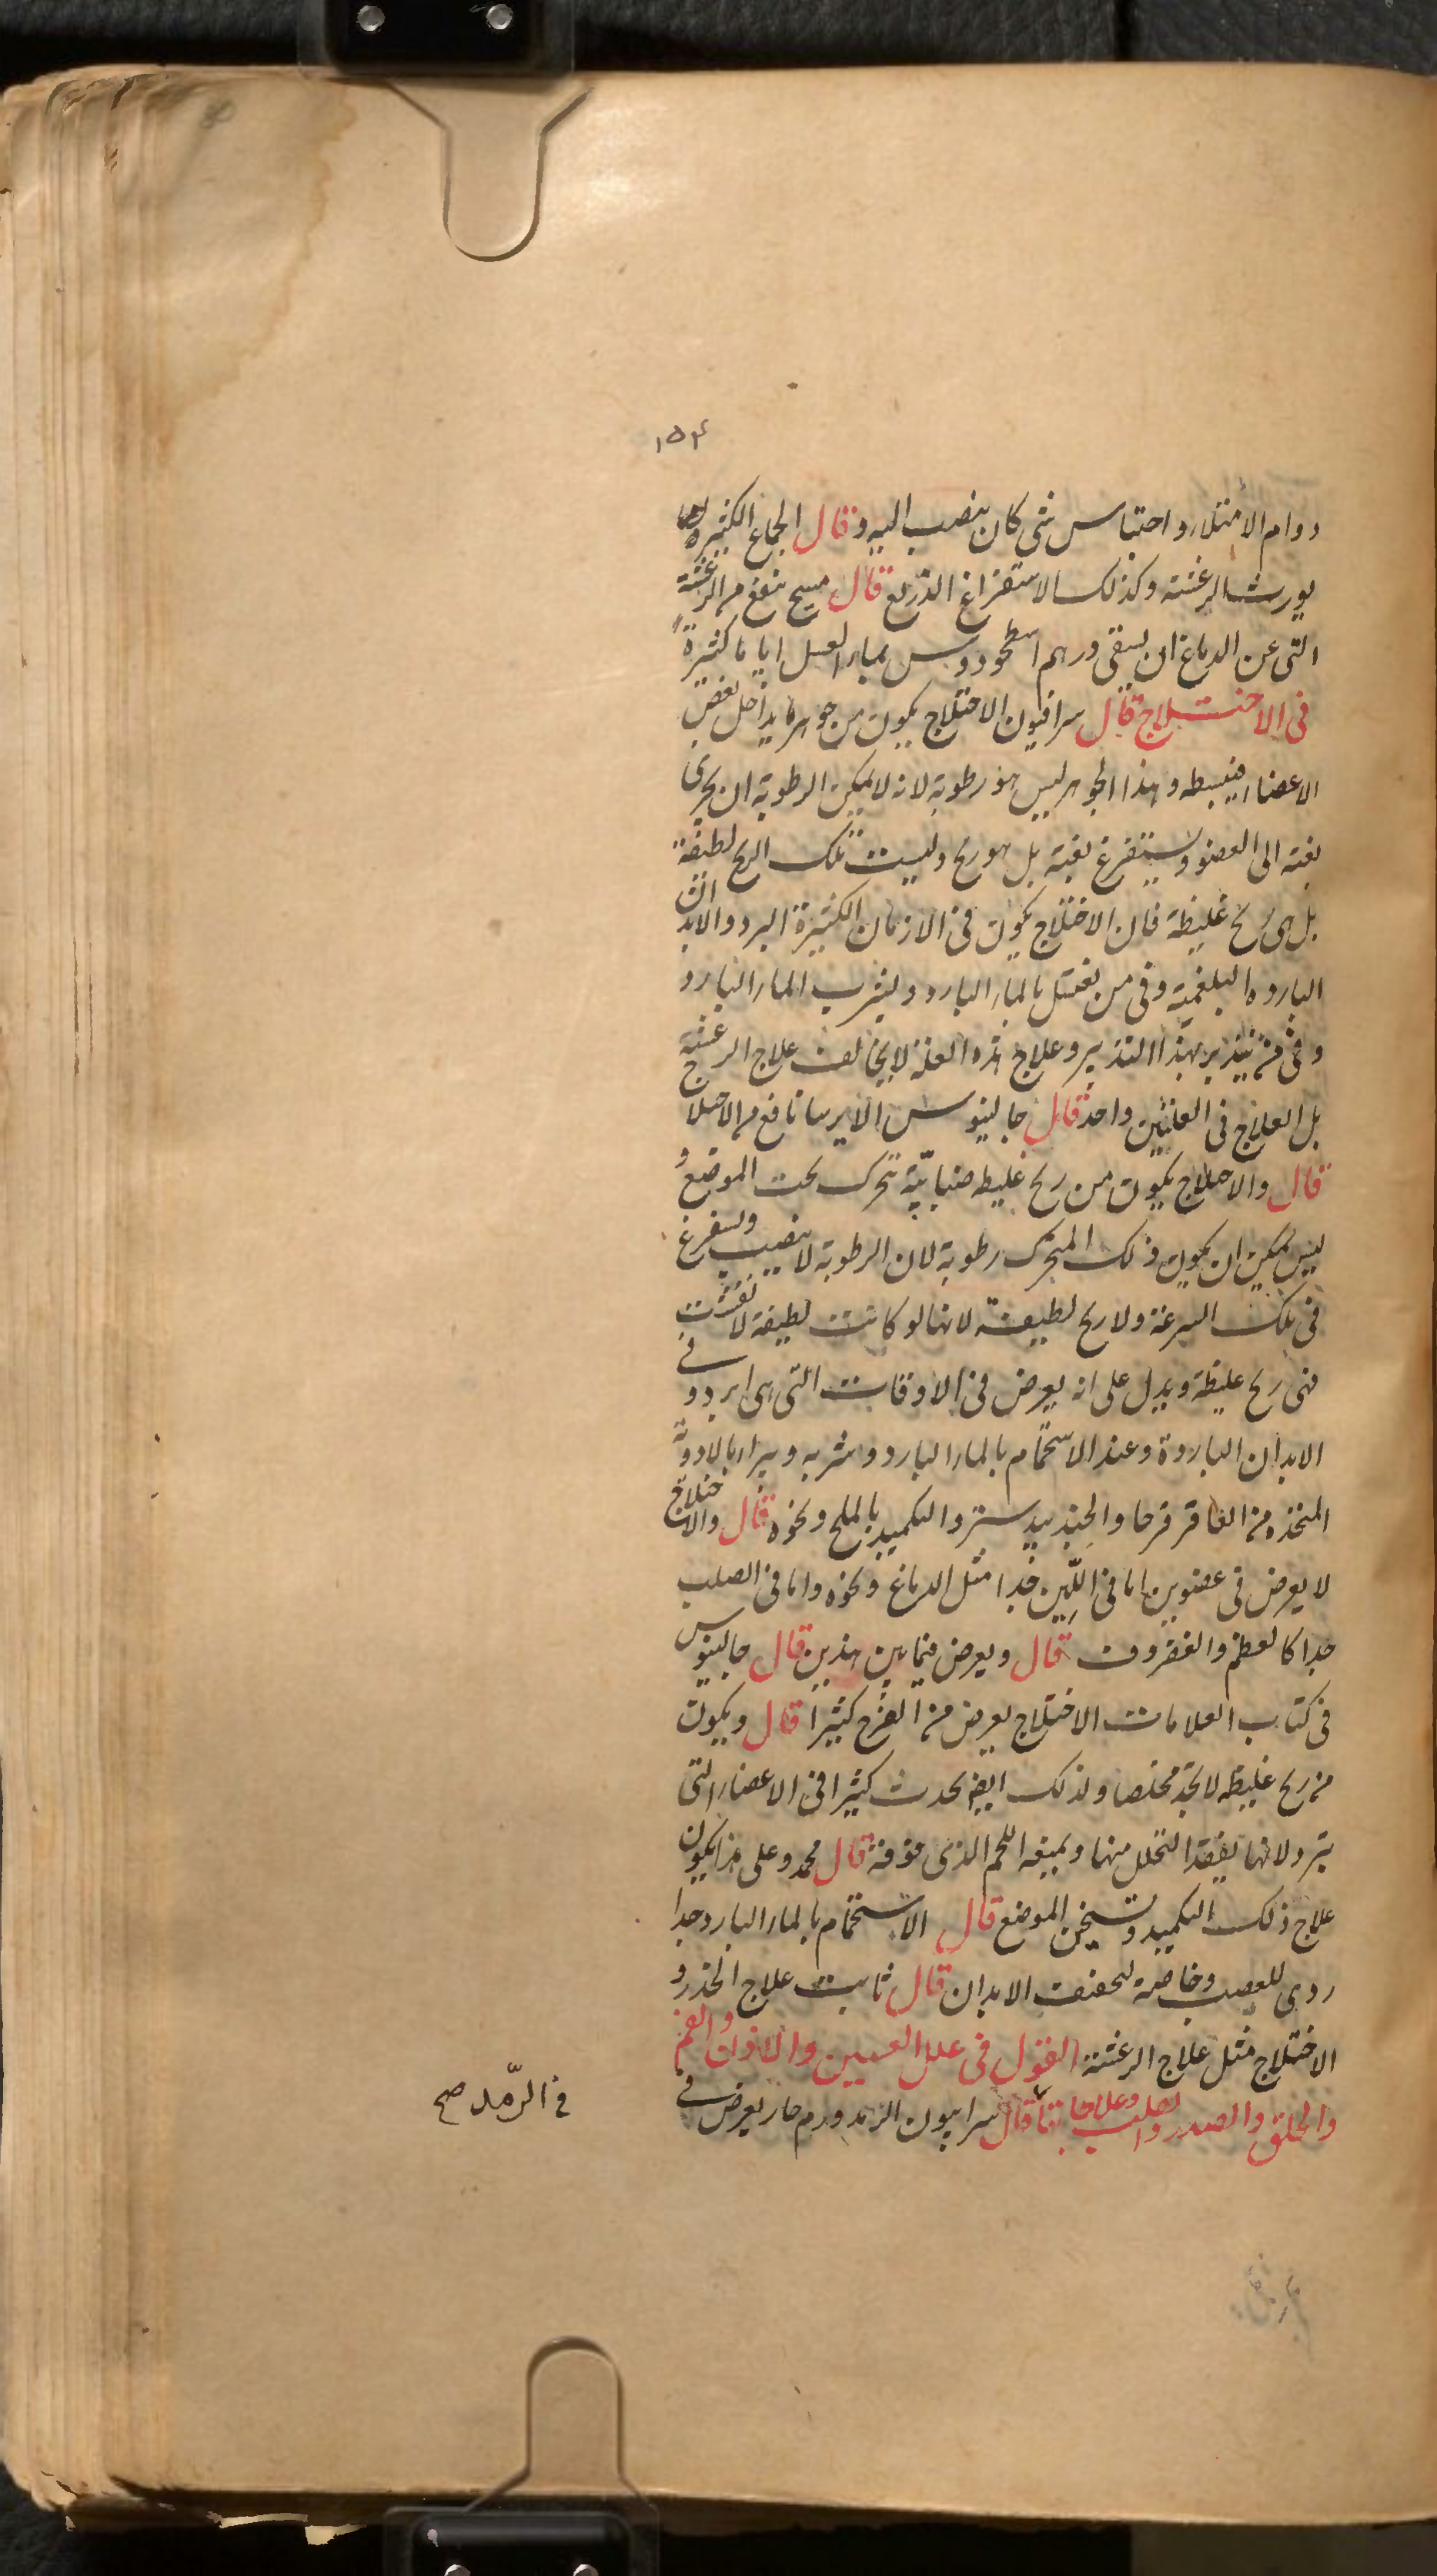 ١٥٤
دوام الامتلاء واحتباس شئ كان ينصب اليه وقال الجماع الكثير
يورث الرعشة وكذلك الاستفراغ الذريع قال مسيح ينفع من الرعشة
التى عن الدماغ ان يسقى درهم اسطوخودوس بماء العسل اياما كثيرة
فى الاختلاج قال سرافيون الاختلاج يكون من جوهر ما يداخل بعض
الاعضاء فيبسطه وهذا الجوهر ليس هو رطوبة لانه لا يمكن الرطوبة ان يجرى
بغتة الى العضو ويستفرغ بغتة بل هو ريح وليست تلك الريح لطيفة
بل هى ريح غليظة فان الاختلاج يكون فى الازمان الكثيرة البرد والابدان
الباردة البلغمية وفى من يغتسل بالماء البارد ويشرب الماء البارد
وفى من يتدبر بهذا التدبير وعلاج هذه العلة لا يخالف علاج الرعشة
بل العلاج فى العلتين واحد قال جالينوس الايرسا نافع من الاختلاج
قال والاختلاج يكون من ريح غليظه ضبابية تتحرك تحت الموضع و
ليس يمكن ان يكون ذلك المتحرك رطوبة لان الرطوبة لا ينصب ويستفرغ
فى تلك السرعة ولا ريح لطيفة لانها لو كانت لطيفة لانفشت
فهى ريح غليظة ويدل على انه يعرض فى الاوقات التى هى ابرد وفى
الابدان الباردة وعند الاستحمام بالماء البارد وشربه ويبراء بالادوية
المتخذه من العاقر قرحا والجندبيدستر والتكميد بالملح ونحوه قال والاختلاج
لا يعرض فى عضوين اما فى اللين جدا مثل الدماغ ونحوه واما فى الصلب
جدا كالعظم والغضروف قال ويعرض فيما بين هذين قال جالينوس
فى كتاب العلامات الاختلاج يعرض من الفرح كثيرا قال ويكون
من ريح غليظه لا تجد مخلصا ولذلك ايضا يحدث كثيرا فى الاعضاء التى
تبرد لانها يفقد التحلل منها ويمنعه اللحم الذى فوقه قال محمد وعلى هذا يكون
علاج ذلك التكميد وتسخين الموضع قال الاستحمام بالماء البارد جدا
ردى للعصب وخاصة لنحفت الابدان قال ثابت علاج الخدر و
الاختلاج مثل علاج الرعشة القول فى علل العينين والاذان والفم
والحلق والصدر والصلب وعلاجها قال سرابيون الرمد ورم حار يعرض فى
فى الرّمد صح